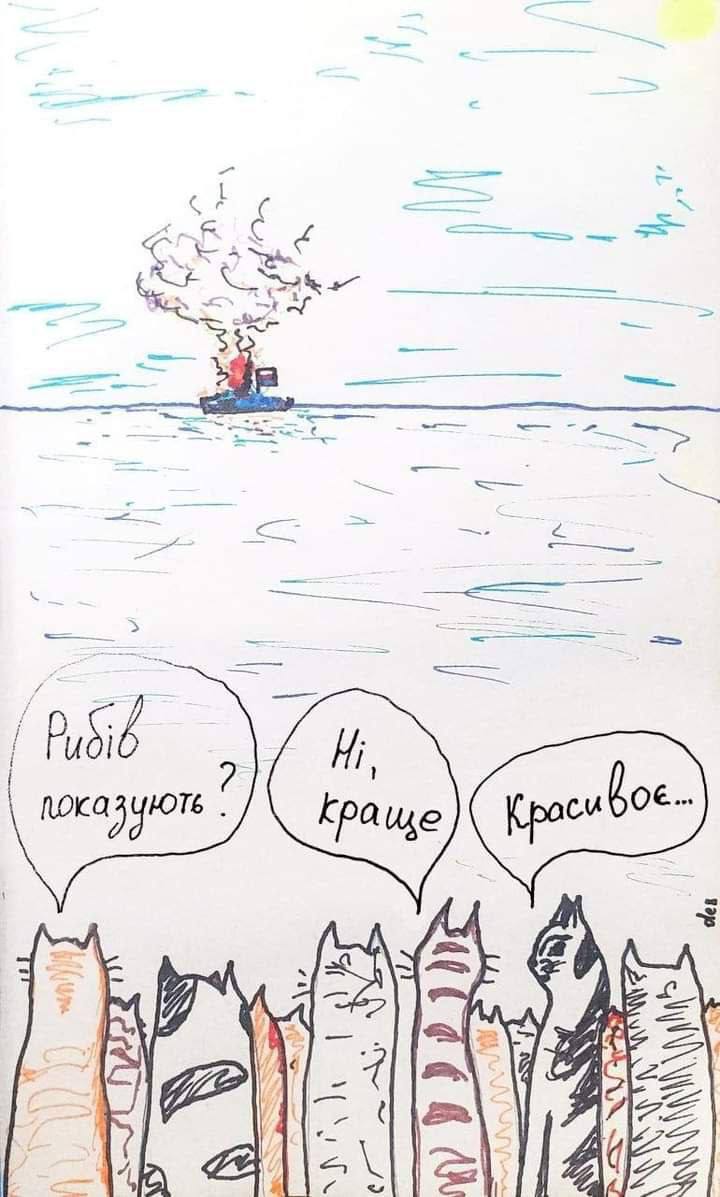 Рибів
показують?
Ні,
краще
Красивоє...
oles